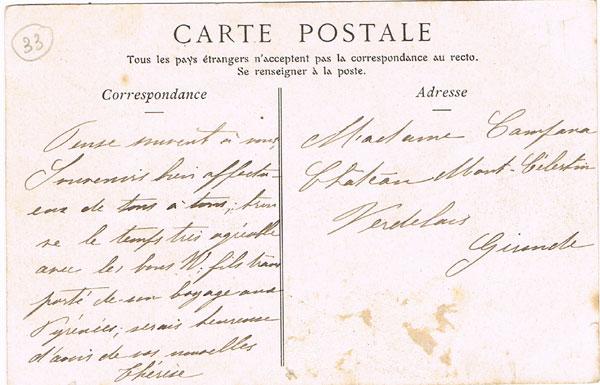 33
CARTE POSTALE
Tous les pays étrangers n'acceptent pas la correspondance au recto.
Se renseigner à la poste.
Correspondance
Pense souvent à vous,
Souvenirs bien affectu-
eux de tous à tous,; trou
ve le temps très agréable
avec les bons fils tran
porté de son voyage aux
Pyrénées; serais heureuse
d'avoir de vos nouvelles
Thérèse
Adresse
Madame Campana
Château Mont-Célestin
Verdelais
Gironde